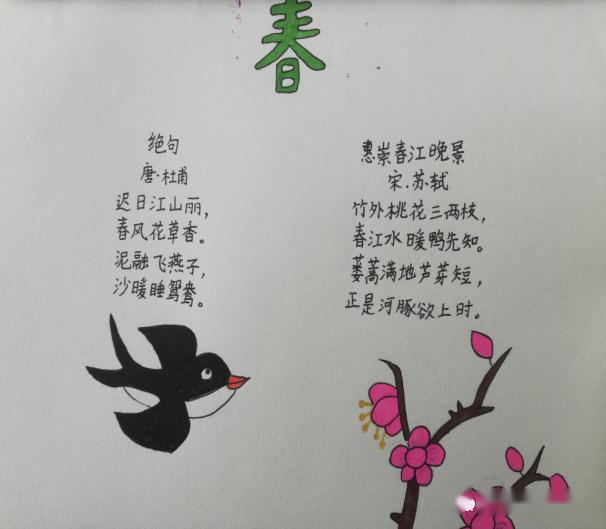 春
绝句
唐·杜甫
迟日江山丽，
春风花草香。
泥融飞燕子，
沙暖睡鸳鸯。
惠崇春江晚景
宋·苏·轼
竹外桃花三两枝，
春江水暖鸭先知。
蒌蒿满地芦芽短，
正是河豚欲上时。